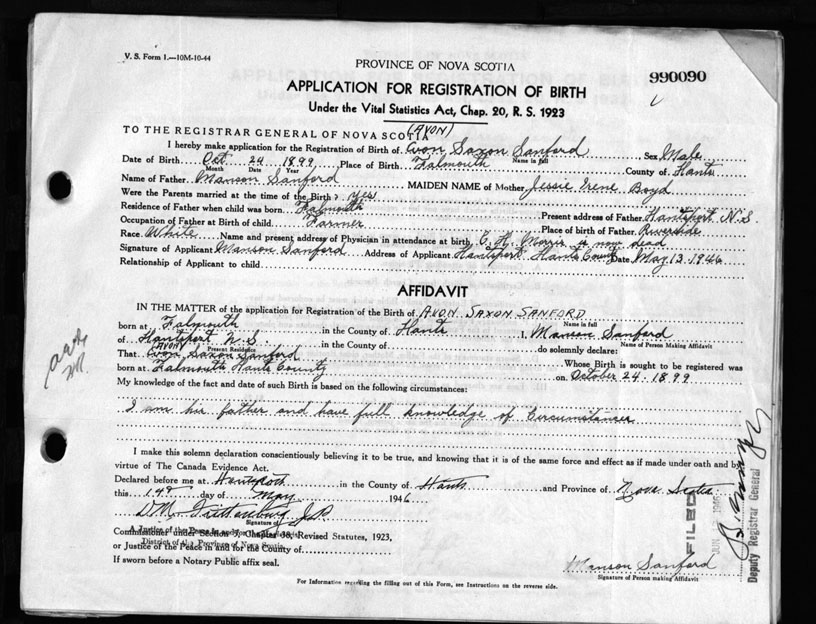 V. S. Form 1.—10M-10-44
PROVINCE OF NOVA SCOTIA
990090
APPLICATION FOR REGISTRATION OF BIRTH
Under the Vital Statistics Act, Chap. 20, R. S. 1923
(AVON)
TO THE REGISTRAR GENERAL OF NOVA SCOTIA
I hereby make application for the Registration of Birth of Evon Saxon Sanford, Sex Male
Name in full
Date of Birth Oct 24 1899 Place of Birth Falmouth County of Hants
Month Date Year
Name of Father Manson Sanford MAIDEN NAME of Mother Jessie Irene Boyd
Were the Parents married at the time of the Birth? yes
Residence of Father when child was born Falmouth Present address of Father Hantsport N.S.
Occupation of Father at Birth of child Farmer Place of birth of Father Riverside
Race White Name and present address of Physician in attendance at birth C. H. Morris is now dead
Signature of Applicant Manson Sanford Address of Applicant Hantsport Hants County Date May 13 1946
Relationship of Applicant to child
AFFIDAVIT
IN THE MATTER of the application for Registration of the Birth of AVON SAXON SANFORD
Name in full
born at Falmouth in the County of Hants I, Manson Sanford
Name of Person Making Affidavit
of Hantsport N S in the County of do solemnly declare:
Present Residence
(AVON)
That Evon Saxon Sanford Whose Birth is sought to be registered was
born at Falmouth Hants County on October 24-1899
My knowledge of the fact and date of such Birth is based on the following circumstances:
I am his father and have full knowledge of Circumstances
I make this solemn declaration conscientiously believing it to be true, and knowing that it is of the same force and effect as if made under oath and by
virtue of The Canada Evidence Act.
Declared before me at Hantsport in the County of Hants and Province of Nova Scotia
this 14th day of May 1946
D.M. J.P.
Signature of
A Justice of the Peace in and for
Commissioner under Section 9, Chapter 38, Revised Statutes, 1923,
District of the Province of Nova Scotia
or Justice of the Peace in and for the County of
If sworn before a Notary Public affix seal.
Manson Sanford
Signature of Person making Affidavit
For Information regarding the filling out of this Form, see Instructions on the reverse side.
FILED
Deputy Registrar General